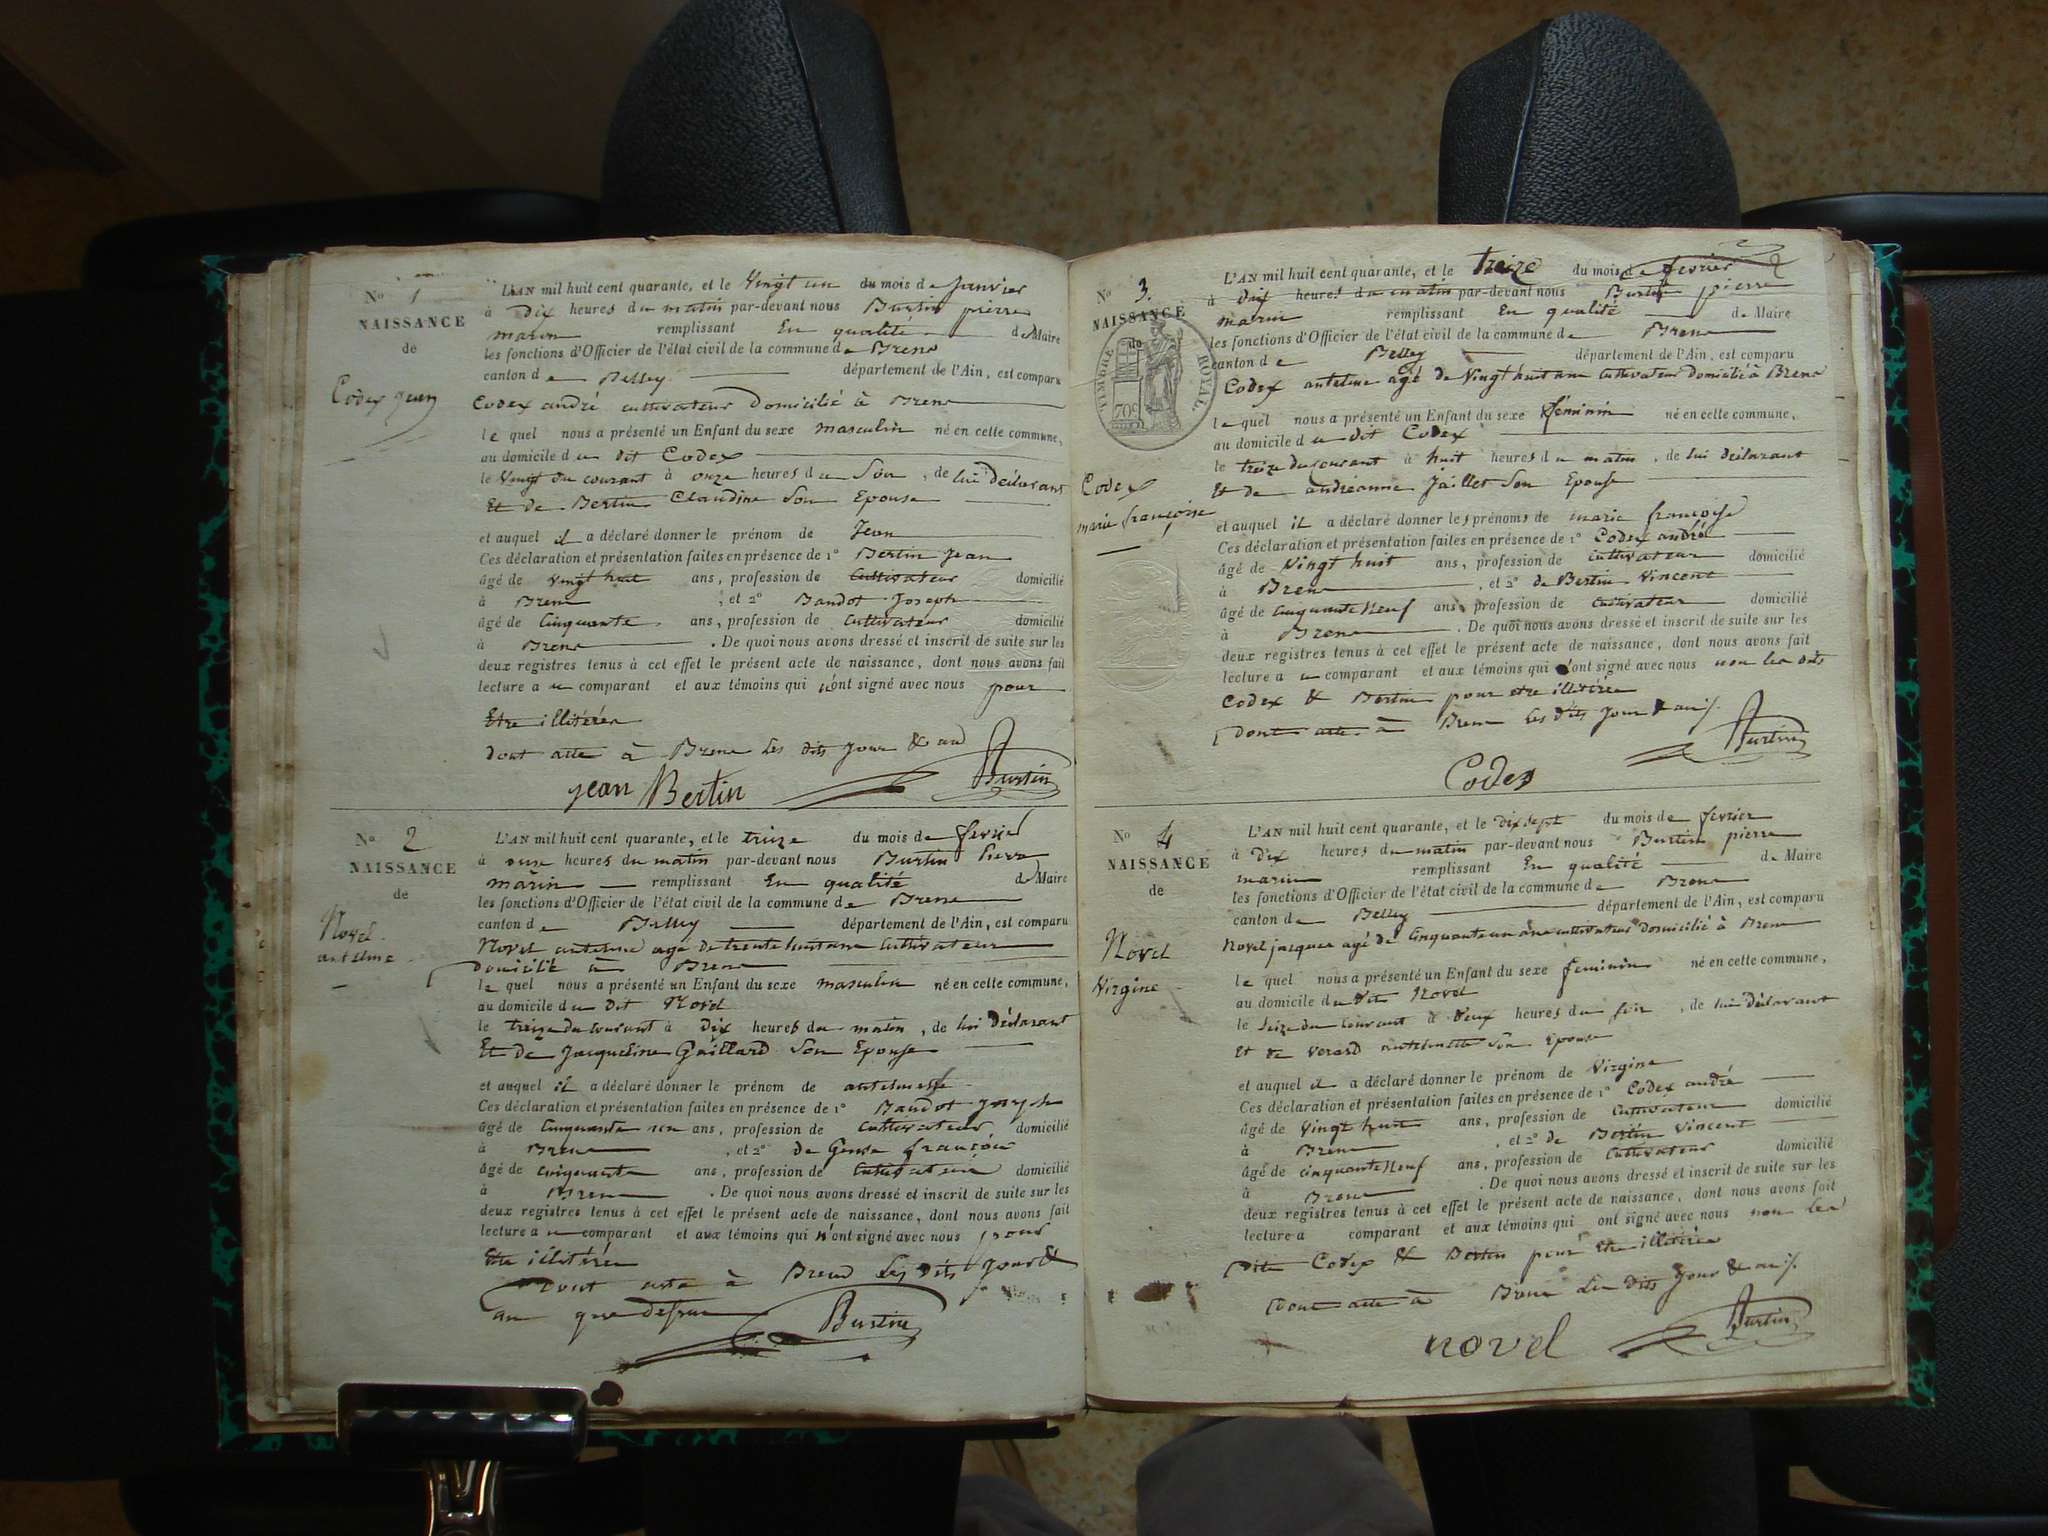 No 1
NAISSANCE
de
Codex Jean
L'AN mil huit cent quarante, et le Vingt un du mois de Janvier
à dix heures du matin par-devant nous Burtin pierre
marin remplissant En qualité de Maire
les fonctions d'Officier de l'état civil de la commune de Brens
canton de Belley département de l'Ain, est comparu
Codex andré cultivateur Domicilié à Brens
lequel nous a présenté un Enfant du sexe masculin né en cette commune,
au domicile du dit Codex
le Vingt du courant à onze heures du Soir, de lui Déclarant
Et de Bertin Claudine Son Epouse
et auquel il a déclaré donner le prénom de Jean
Ces déclaration et présentation faites en présence de 1° Bertin Jean
âgé de vingt huit ans, profession de Cultivateur domicilié
à Brens, et 2° Baudot Joseph
âgé de Cinquante ans, profession de Cultivateur domicilié
à Brens. De quoi nous avons dressé et inscrit de suite sur les
deux registres tenus à cet effet le présent acte de naissance, dont nous avons fait
lecture au comparant et aux témoins qui n'ont signé avec nous pour
Etre illitérés
dont acte à Brens les dits jour & an
jean Bertin Burtin
No 2
NAISSANCE
de
Novel
antelme
L'AN mil huit cent quarante, et le treize du mois de fevrier
à onze heures du matin par-devant nous Burtin Pierre
marin remplissant En qualité de Maire
les fonctions d'Officier de l'état civil de la commune de Brens
canton de Belley département de l'Ain, est comparu
Novel antelme agé de trente huit ans Cultivateur
domicilié à Brens
lequel nous a présenté un Enfant du sexe masculin né en cette commune,
au domicile du Dit Novel
le treize du courant à Dix heures du matin, de lui Déclarant
Et de Jacqueline Gaillard Son Epouse
et auquel il a déclaré donner le prénom de
Ces déclaration et présentation faites en présence de 1° Baudot Joseph
âgé de Cinquante ans, profession de Cultivateur domicilié
à Brens, et 2° de françois
âgé de cinquante ans, profession de Cultivateur domicilié
à Brens. De quoi nous avons dressé et inscrit de suite sur les
deux registres tenus à cet effet le présent acte de naissance, dont nous avons fait
lecture au comparant et aux témoins qui n'ont signé avec nous pour
Etre illitérés
Dont acte à Brens les dits jour &
an que dessus Burtin
No 3.
NAISSANCE
de
TIMBRE ROYAL
70c
Codex
marie françoise
L'AN mil huit cent quarante, et le treize du mois de fevrier
à dix heures du matin par-devant nous Burtin pierre
marin remplissant En qualité de Maire
les fonctions d'Officier de l'état civil de la commune de Brens
canton de Belley département de l'Ain, est comparu
Codex antelme agé de Vingt huit ans Cultivateur Domicilié à Brens
lequel nous a présenté un Enfant du sexe féminin né en cette commune,
au domicile du dit Codex
le treize du courant à huit heures du matin, de lui déclarant
Et de andréanne Jaillet Son Epouse
et auquel il a déclaré donner les prénoms de marie françoise
Ces déclaration et présentation faites en présence de 1° Codex andré
âgé de Vingt huit ans, profession de Cultivateur domicilié
à Brens, et 2° de Bertin Vincent
âgé de Cinquante neuf ans, profession de Cultivateur domicilié
à Brens. De quoi nous avons dressé et inscrit de suite sur les
deux registres tenus à cet effet le présent acte de naissance, dont nous avons fait
lecture au comparant et aux témoins qui ont signé avec nous non les dits
Codex & Bertin pour etre illitérés
Dont acte à Brens les dits jour & an
Codex Burtin
No 4
NAISSANCE
de
Novel
Virgine
L'AN mil huit cent quarante, et le dix sept du mois de fevrier
à dix heures du matin par-devant nous Burtin pierre
marin remplissant En qualité de Maire
les fonctions d'Officier de l'état civil de la commune de Brens
canton de Belley département de l'Ain, est comparu
Novel jacques agé de Cinquante un ans cultivateur Domicilié à Brens
lequel nous a présenté un Enfant du sexe feminin né en cette commune,
au domicile du dit Novel
le Seize du courant à deux heures du soir, de lui Déclarant
Et de Son Epouse
et auquel il a déclaré donner le prénom de Virgine
Ces déclaration et présentation faites en présence de 1° Codex andré
âgé de vingt huit ans, profession de Cultivateur domicilié
à Brens, et 2° de Bertin Vincent
âgé de cinquante neuf ans, profession de Cultivateur domicilié
à Brens. De quoi nous avons dressé et inscrit de suite sur les
deux registres tenus à cet effet le présent acte de naissance, dont nous avons fait
lecture a comparant et aux témoins qui ont signé avec nous non les
Dits Codex & Bertin pour Etre illitérés
Dont acte à Brens les dits jour & an
novel Burtin